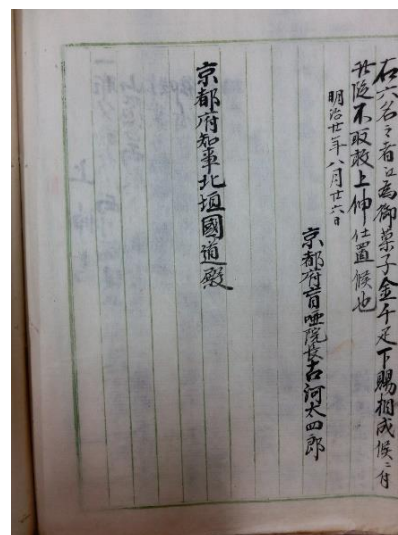 右六名之者ヱ為御菓子金千疋下賜相成候ニ付
此段不取敢上伸仕置候也
明治廿年八月廿六日
京都府盲唖院長古河太四郎
京都府知事北垣國道殿